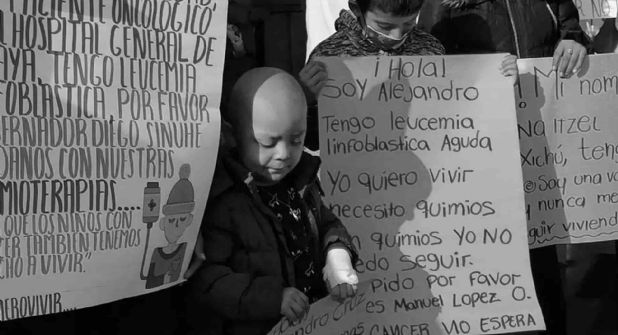 PACIENTE ONCOLÓGICO,
HOSPITAL GENERAL DE
AYA, TENGO LEUCEMIA
FOBLÁSTICA, POR FAVOR
ERNADOR DIEGO SINUHE
DANOS CON NUESTRAS
MIOTERAPIAS....
QUE LOS NIÑOS CON
CER TAMBIEN TENEMOS
CHO A VIVIR."
MEROVIVIR...
¡Hola!
SOY Alejandro
Tengo leucemia
linfroblastica Aguda
Yo quiero vivir
necesito quimios
quimios YO NO
edo seguir.
Pido por favor
es Manuel Lopez O.
CANCER NO ESPERA
Mi nom
Na ITZEL
Xichú, teng
Soy una va
nunca me
uir viviend